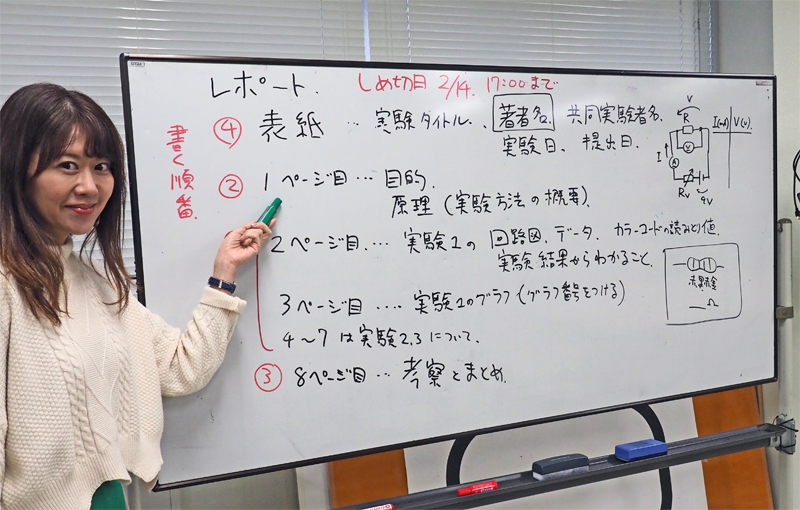 レポート. しめ切日 2/14. 17:00まで
書く順番.
④ 表紙 … 実験タイトル、著者名. 共同実験者名.
実験日、提出日.
② 1ページ目 … 目的.
原理 (実験方法の概要).
2ページ目. … 実験1の回路図、データ. カラーコードの読みとり値.
実験結果からわかること.
3ページ目 …. 実験1のグラフ (グラフ番号をつける)
4〜7は実験2.3について.
③ 8ページ目 … 考察とまとめ.
V
R
V
I
A
Rv
9V
I(mA) V(v).
Ω